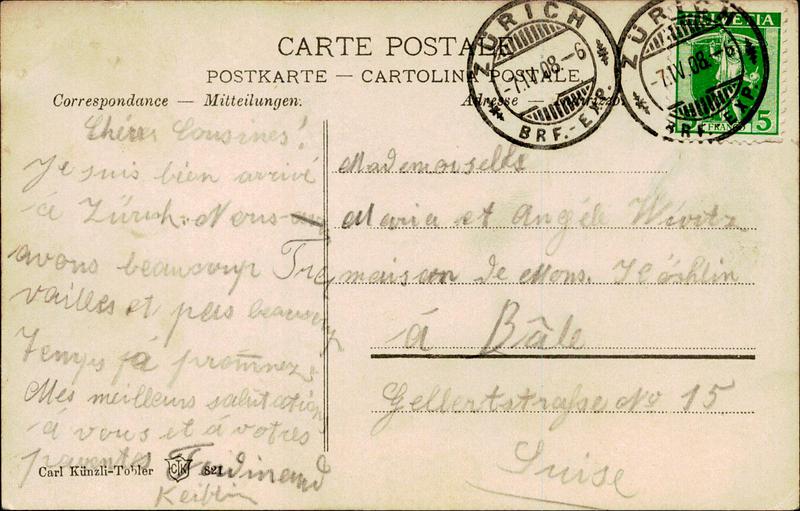 CARTE POSTALE
POSTKARTE — CARTOLINA POSTALE
Correspondance — Mitteilungen.
Adresse —
ZÜRICH
-7.IV.08.-6
BRF.-EXP.
ZÜRICH
-7.IV.08.-6
BRF.-EXP.
HELVETIA
5 FRANCO 5
Chéres Cousines!
Je suis bien arrivé
á Zürich. Nous
avons beaucoup Tra
vailles et pas beaucoup
Temps já
Mes meilleurs salutations
á vous et á votres
parentes Ferdinand
Mademoiselle
Maria et Angéle
maison de Mons.
á Bâle
Gellertstraße No 15
Suise
Carl Künzli-Tobler CTK 821